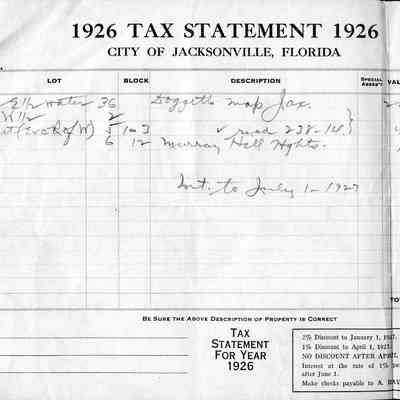 1926 TAX STATEMENT 1926
CITY OF JACKSONVILLE, FLORIDA
LOT BLOCK DESCRIPTION SPECIAL ASSES'T VAL
E½ water 36 Doggetts map Jax.
W½ 2
5 1 3 ✓ 238-14 }
6 12 Murray Hill Hghts.
Int. to July 1-1927
TO
BE SURE THE ABOVE DESCRIPTION OF PROPERTY IS CORRECT
TAX
STATEMENT
FOR YEAR
1926
2% Discount to January 1, 1927.
1% Discount to April 1, 1927.
NO DISCOUNT AFTER APRIL
Interest at the rate of 1% pe
after June 1.
Make checks payable to A. DAY